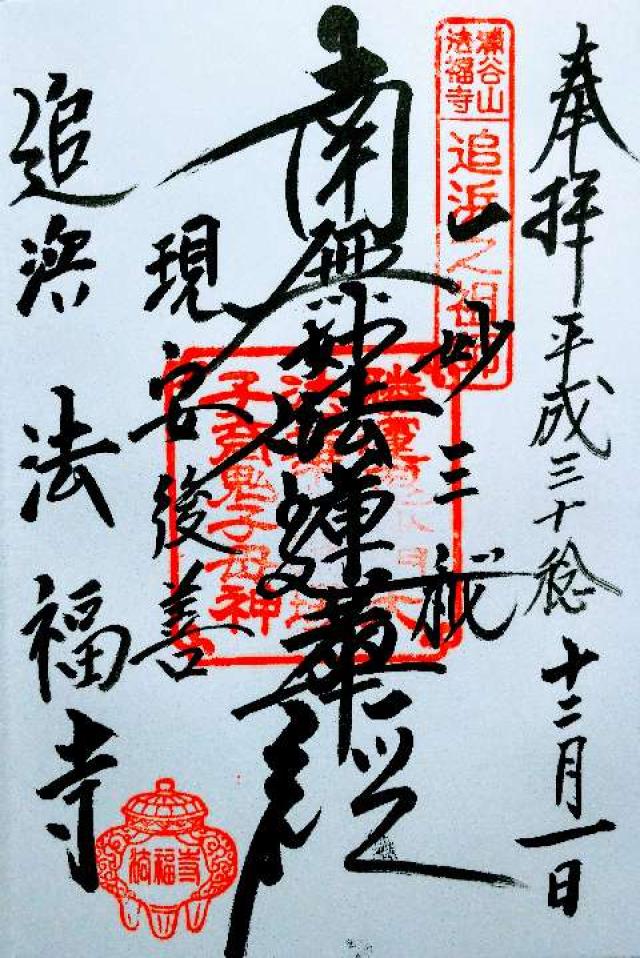 奉拝
平成三十稔十二月一日
瀬谷山
法福寺
追浜之祖師
一妙三秘
南無妙法蓮華経
現安後善
子育鬼子母神
追濱法福寺
法福寺